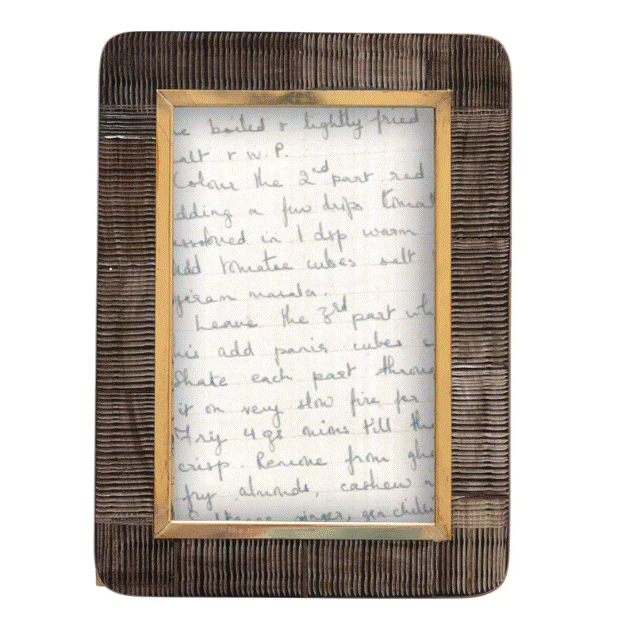 e boiled & lightly fried
alt & W.P.
Colour the 2nd part red
dding a few drops tomat
issolved in 1 dsp warm
Add tomatoe cubes salt
garam masala.
Leave the 3rd part whi
his add panir cubes
Shake each part throu
it on very slow fire for
Fry 4 onions till the
crisp. Remove from ghe
fry almonds, cashew n
ginger, grn chilli